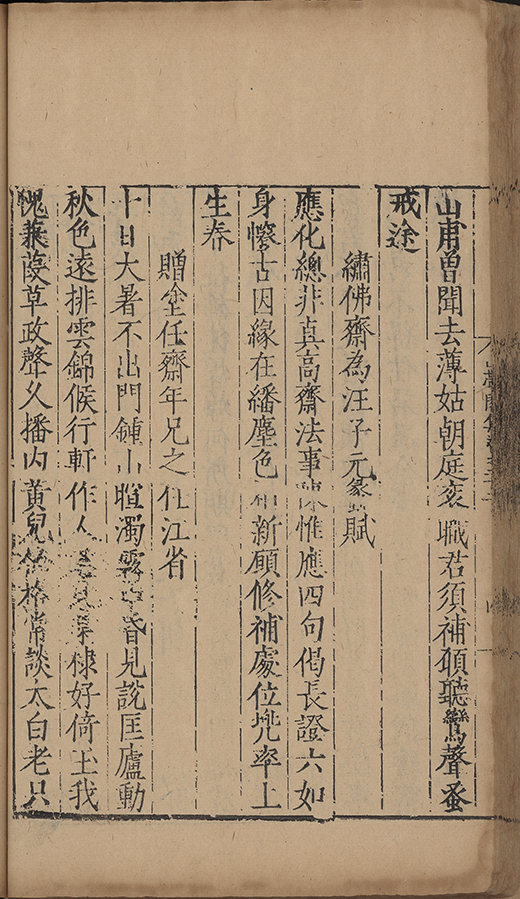 山甫曾聞去薄姑朝庭袞職君須補碩聽鸞聲蚤
戒途
繡佛齋為汪子元篆賦
應化總非真高齋法事惟應四句偈長證六如
身懷古因緣在繙塵色新願修補處位兠率上
生春
贈金任齋年兄之任江省
十日大暑不出門鍾山暄濁霧昏見說匡廬動
秋色遠排雲錦候行軒作棣好倚玉我
愧蒹葭草政聲久播內黃兒格常談太白老只